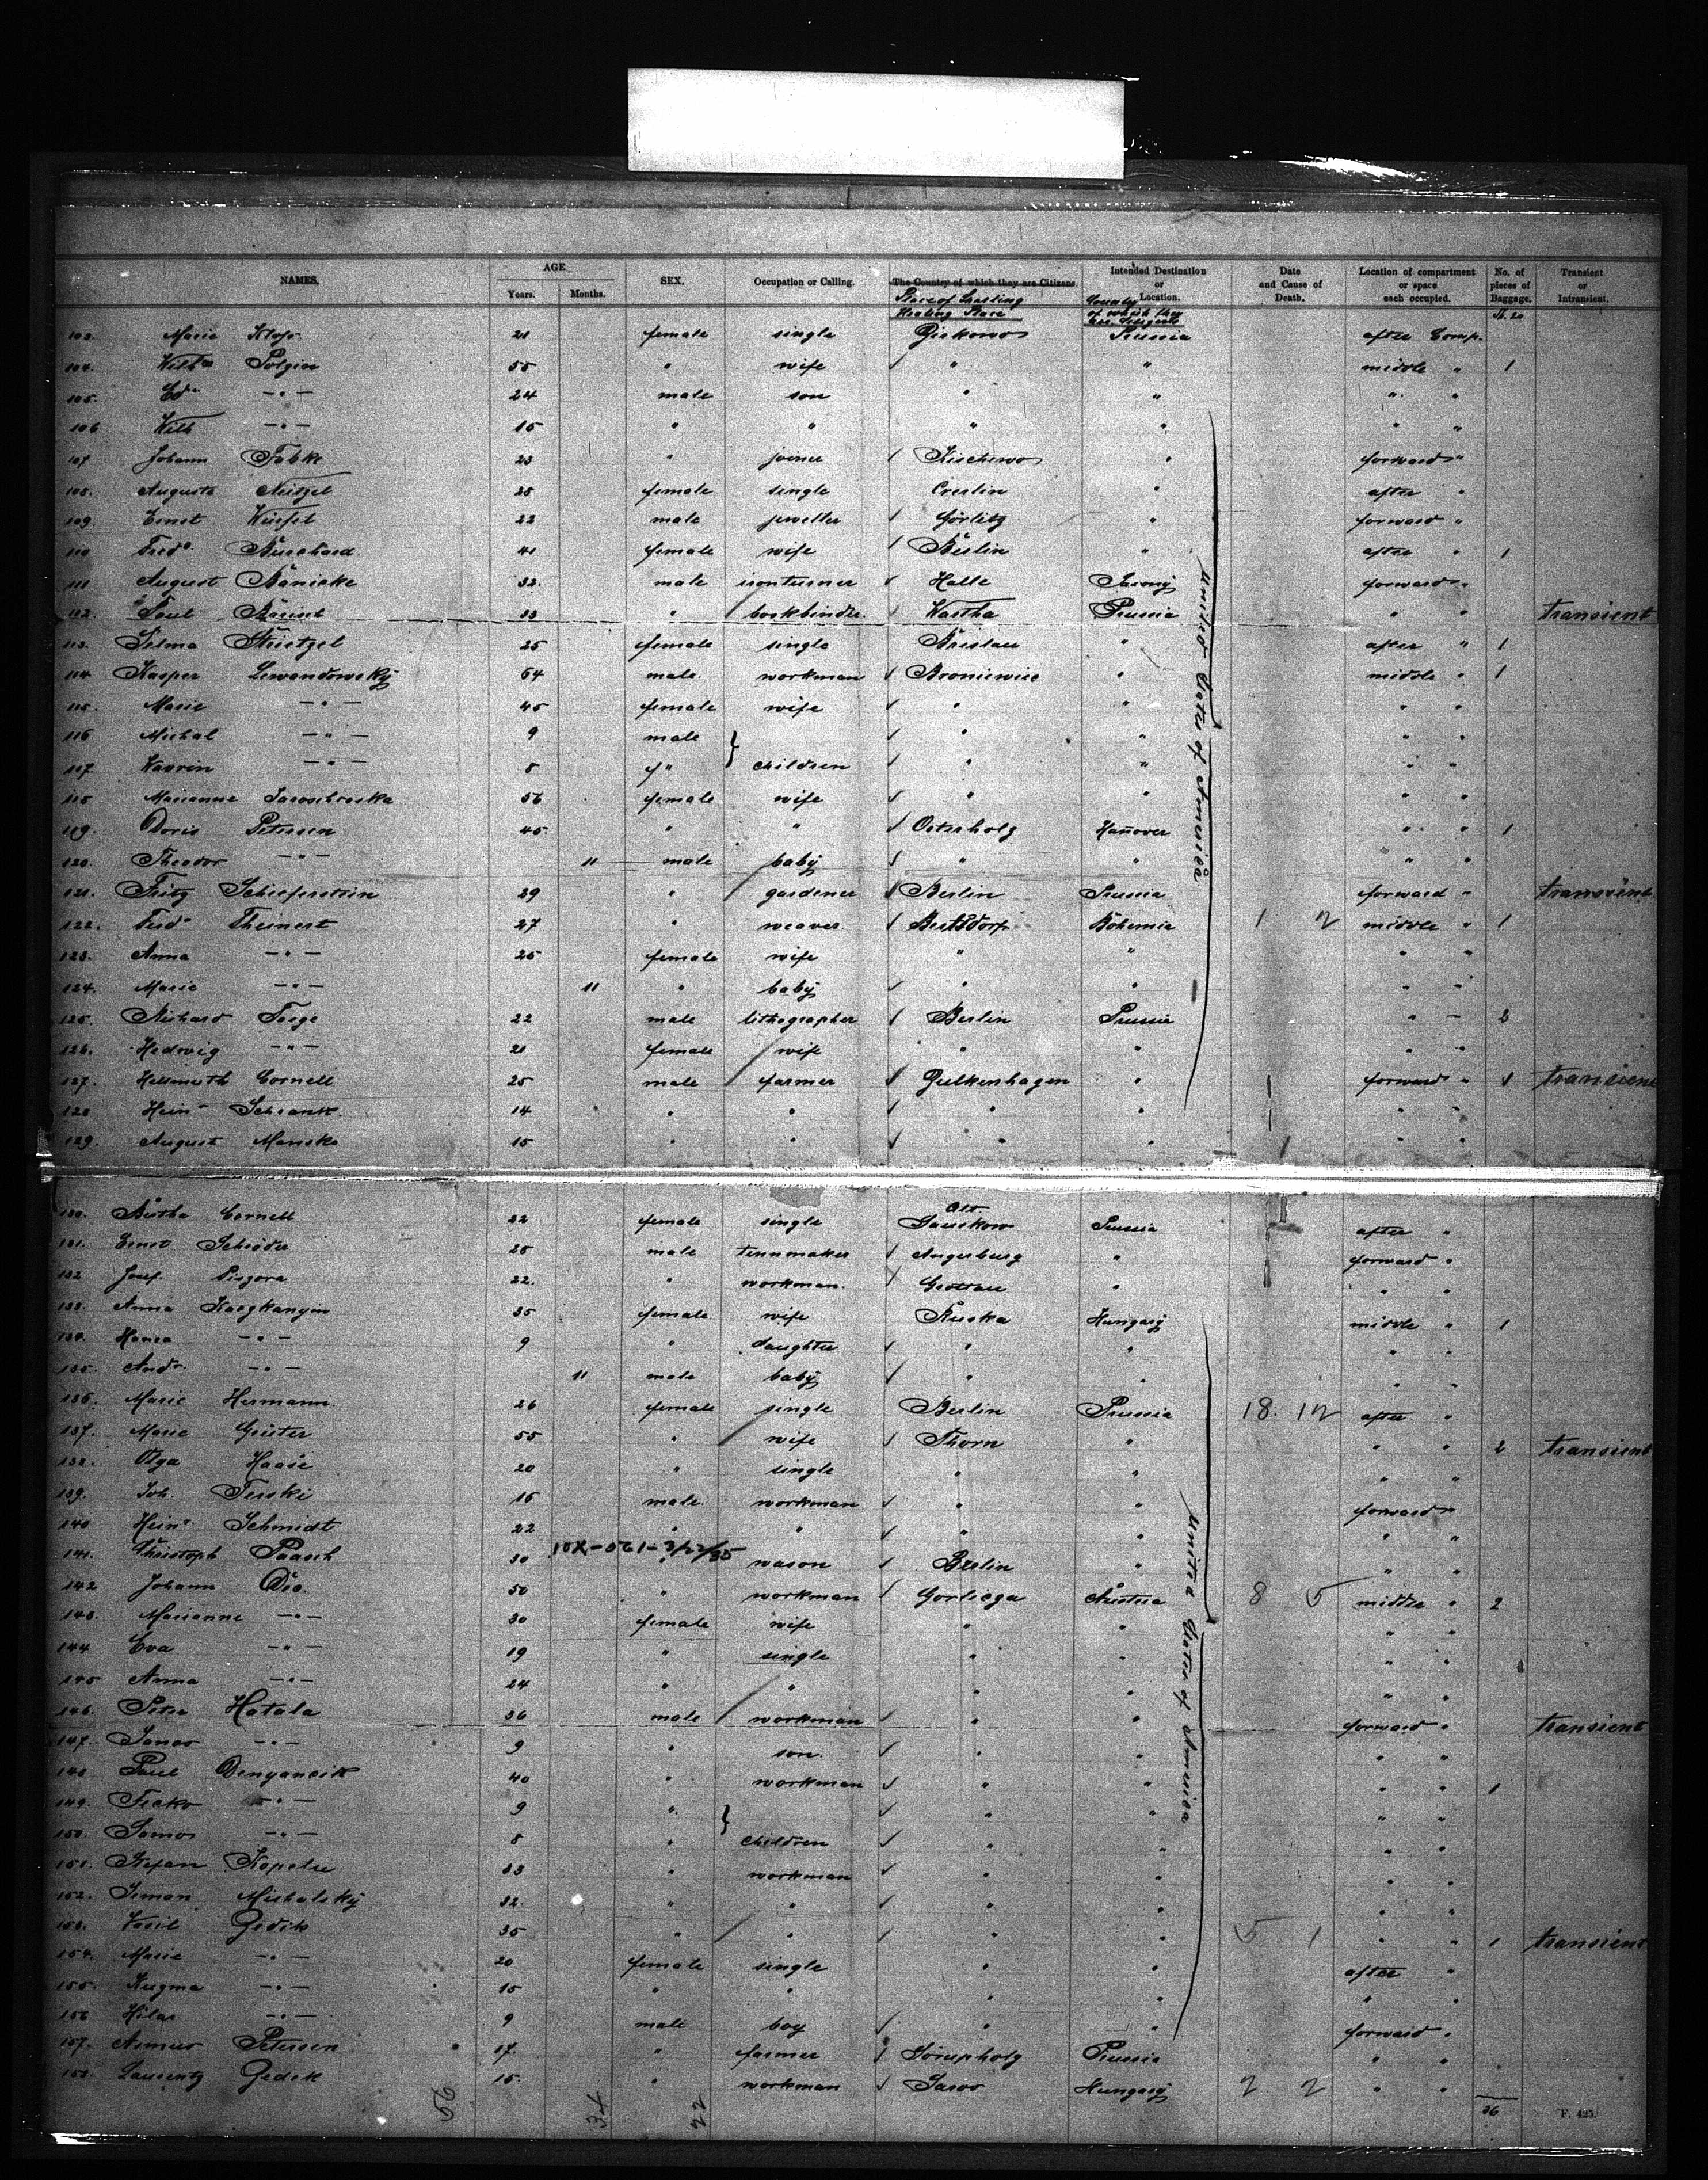 NAMES. AGE Years. Months. SEX. Occupation or Calling. The Country of which they are Citizens. Intended Destination or Location. Date and Cause of Death. Location of compartment or space each occupied. No. of pieces of Baggage. Transient or Intransient.
Place of Starting County of which they are Citizens
103. Marie 21 female single Prussia after Comp.
104. Wilh. Polzin 55 " wife " " middle " 1
105. Ed. — " — 24 male son " " " "
106 Wilh — " — 15 " " " " " "
107 Johann Fabke 23 " joiner Kischewo " forward "
108. Auguste Neitzel 25 female single Creslin " after "
109. Ernst 22 male jeweller Görlitz " forward "
110 Fred. Burchard 41 female wife Berlin " after " 1
111 August Bänicke 32. male ironturner Halle Saxony forward "
112. Paul 33 " bookbinder Wartha Prussia " " transient
113. Selma 25 female single Breslau " after " 1
114 Kasper Lewandowsky 64 male workman Broniewice " middle " 1
115. Marie — " — 45 female wife " " " "
116 Michal — " — 9 male " " " "
117. — " — 8 " children " " " "
118 Marianne 56 female wife " " " "
119. Doris Petersen 45 " " Osterholz Hanover " " 1
120. Theodor — " — 11 male baby " " " "
121. Fritz Schieferstein 29 " gardener Berlin Prussia forward " transient
122. Ferd. Theinert 27 " weaver Bertsdorf Bohemia 1 2 middle " 1
123. Anna — " — 25 female wife " " " "
124. Marie — " — 11 " baby " " " "
125. Richard 22 male lithographer Berlin Prussia " " 2
126. Hedwig — " — 21 female wife " " " "
127. Hellmuth Cornell 25 male farmer Gülkenhagen " forward " 1 transient
128 Hein Schrank 14 " " " " " "
129. August Manske 15 " " " " " "
130. Bertha Cornell 22 female single Alt after " Prussia
131. Ernst Schröder 25 male Angerburg " forward "
132 Josef Pisgora 22. " workman. Grottau " " "
133. Anna 35 female wife Ruska Hungary middle " 1
134. Hanna — " — 9 " daughter " " " "
135. And. — " — 11 male baby " " " "
136. Marie Hermann. 26 female single Berlin Prussia 18. 12 after "
137. Marie 55 " wife Thorn " " " 2 transient
138. Olga Haase 20 " single " " " "
139. Joh. Terski 16 male workman " " forward "
140 Hein. Schmidt 22 " " " " " "
141. Christoph Paasch 30 10X-061-3/22/35 mason Berlin " " "
142 Johann 50 " workman Gorliega Austria 8 5 middle " 2
143. Marianne — " — 30 female wife " " " "
144 Eva — " — 19 " single " " " "
145 Anna — " — 24 " " " " " "
146. Peter Hatala 36 male workman " " forward " transient
147. Janos — " — 9 " son " " " "
148 Paul 40 " workman " " " " 1
149. Fecko — " — 9 " " " " "
150. Janos — " — 8 " children " " " "
151. Stefan 33 " workman " " " "
152. Simon Michalsky 32. " " " " " "
153. Vasil Gedik 35 " " " " 5 1 " " 1 transient
154. Marie — " — 20 female single " " after "
155. — " — 15 " " " " " "
156 Hilar — " — 9 male boy " " forward "
157. Petersen 17. " farmer Prussia " "
158. Laurentz Gedik 15. " workman Saros Hungary 2 2 " "
United States of America
United States of America
34
22
36
F. 425.